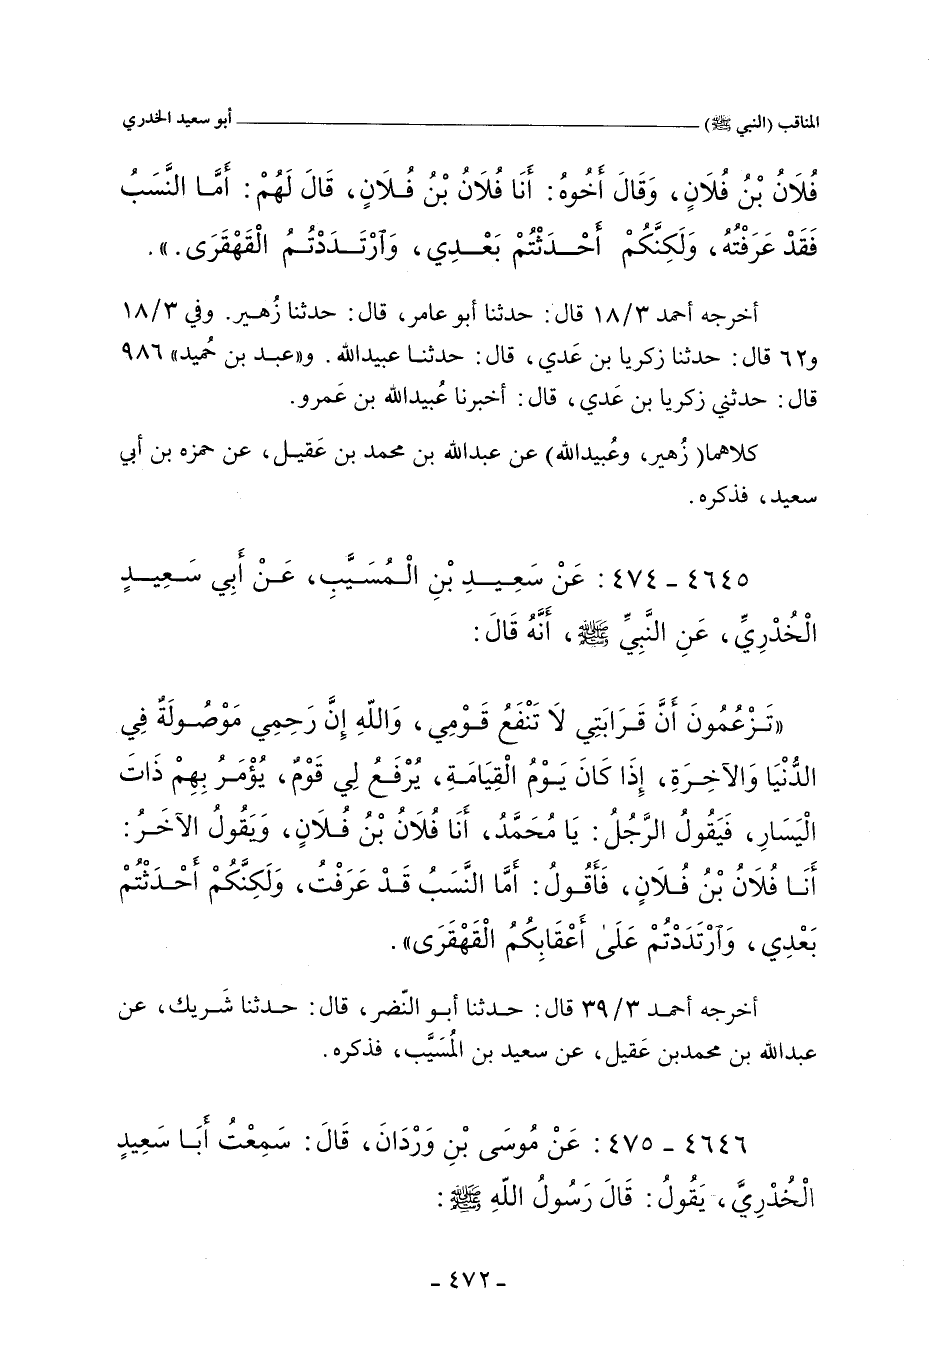 المناقب (النبي ﷺ) ـــــــــــ أبو سعيد الخدري
فُلَانُ بْنُ فُلَانٍ، وَقَالَ أَخُوهُ: أَنَا فُلَانُ بْنُ فُلَانٍ، قَالَ لَهُمْ: أَمَّا النَّسَبُ
فَقَدْ عَرَفْتُهُ، وَلَكِنَّكُمْ أَحْدَثْتُمْ بَعْدِي، وَآرْتَدَدْتُمُ الْقَهْقَرَى.».
أخرجه أحمد ١٨/٣ قال: حدثنا أبو عامر، قال: حدثنا زُهير. وفي ١٨/٣
و٦٢ قال: حدثنا زكريا بن عَدي، قال: حدثنا عبيدالله. و«عبد بن حُميد» ٩٨٦
قال: حدثني زكريا بن عَدي، قال: أخبرنا عُبيدالله بن عَمرو.
كلاهما( زُهير، وعُبيدالله) عن عبدالله بن محمد بن عَقيل، عن حمزه بن أبي
سعيد، فذكره.
٤٦٤٥ - ٤٧٤: عَنْ سَعِيدِ بْنِ الْمُسَيَّبِ، عَنْ أَبِي سَعِيدٍ
الْخُدْرِيِّ، عَنِ النَّبِيِّ ﷺ، أَنَّهُ قَالَ:
«تَزْعُمُونَ أَنَّ قَرَابَتِي لَا تَنْفَعُ قَوْمِي، وَاللّهِ إِنَّ رَحِمِي مَوْصُولَةٌ فِي
الدُّنْيَا وَالآخِرَةِ، إِذَا كَانَ يَوْمُ الْقِيَامَةِ، يُرْفَعُ لِي قَوْمٌ، يُؤْمَرُ بِهِمْ ذَاتَ
الْيَسَارِ، فَيَقُولُ الرَّجُلُ: يَا مُحَمَّدُ، أَنَا فُلَانُ بْنُ فُلَانٍ، وَيَقُولُ الآخَرُ:
أَنَا فُلَانُ بْنُ فُلَانٍ، فَأَقُولُ: أَمَّا النَّسَبُ قَدْ عَرَفْتُ، وَلَكِنَّكُمْ أَحْدَثْتُمْ
بَعْدِي، وَآرْتَدَدْتُمْ عَلَىٰ أَعْقَابِكُمُ الْقَهْقَرَى».
أخرجه أحمد ٣٩/٣ قال: حدثنا أبو النّضر، قال: حدثنا شَريك، عن
عبدالله بن محمدبن عَقيل، عن سعيد بن المُسَيَّب، فذكره.
٤٦٤٦ - ٤٧٥: عَنْ مُوسَى بْنِ وَرْدَانَ، قَالَ: سَمِعْتُ أَبَا سَعِيدٍ
الْخُدْرِيَّ، يَقُولُ: قَالَ رَسُولُ اللّهِ ﷺ:
- ٤٧٢ -